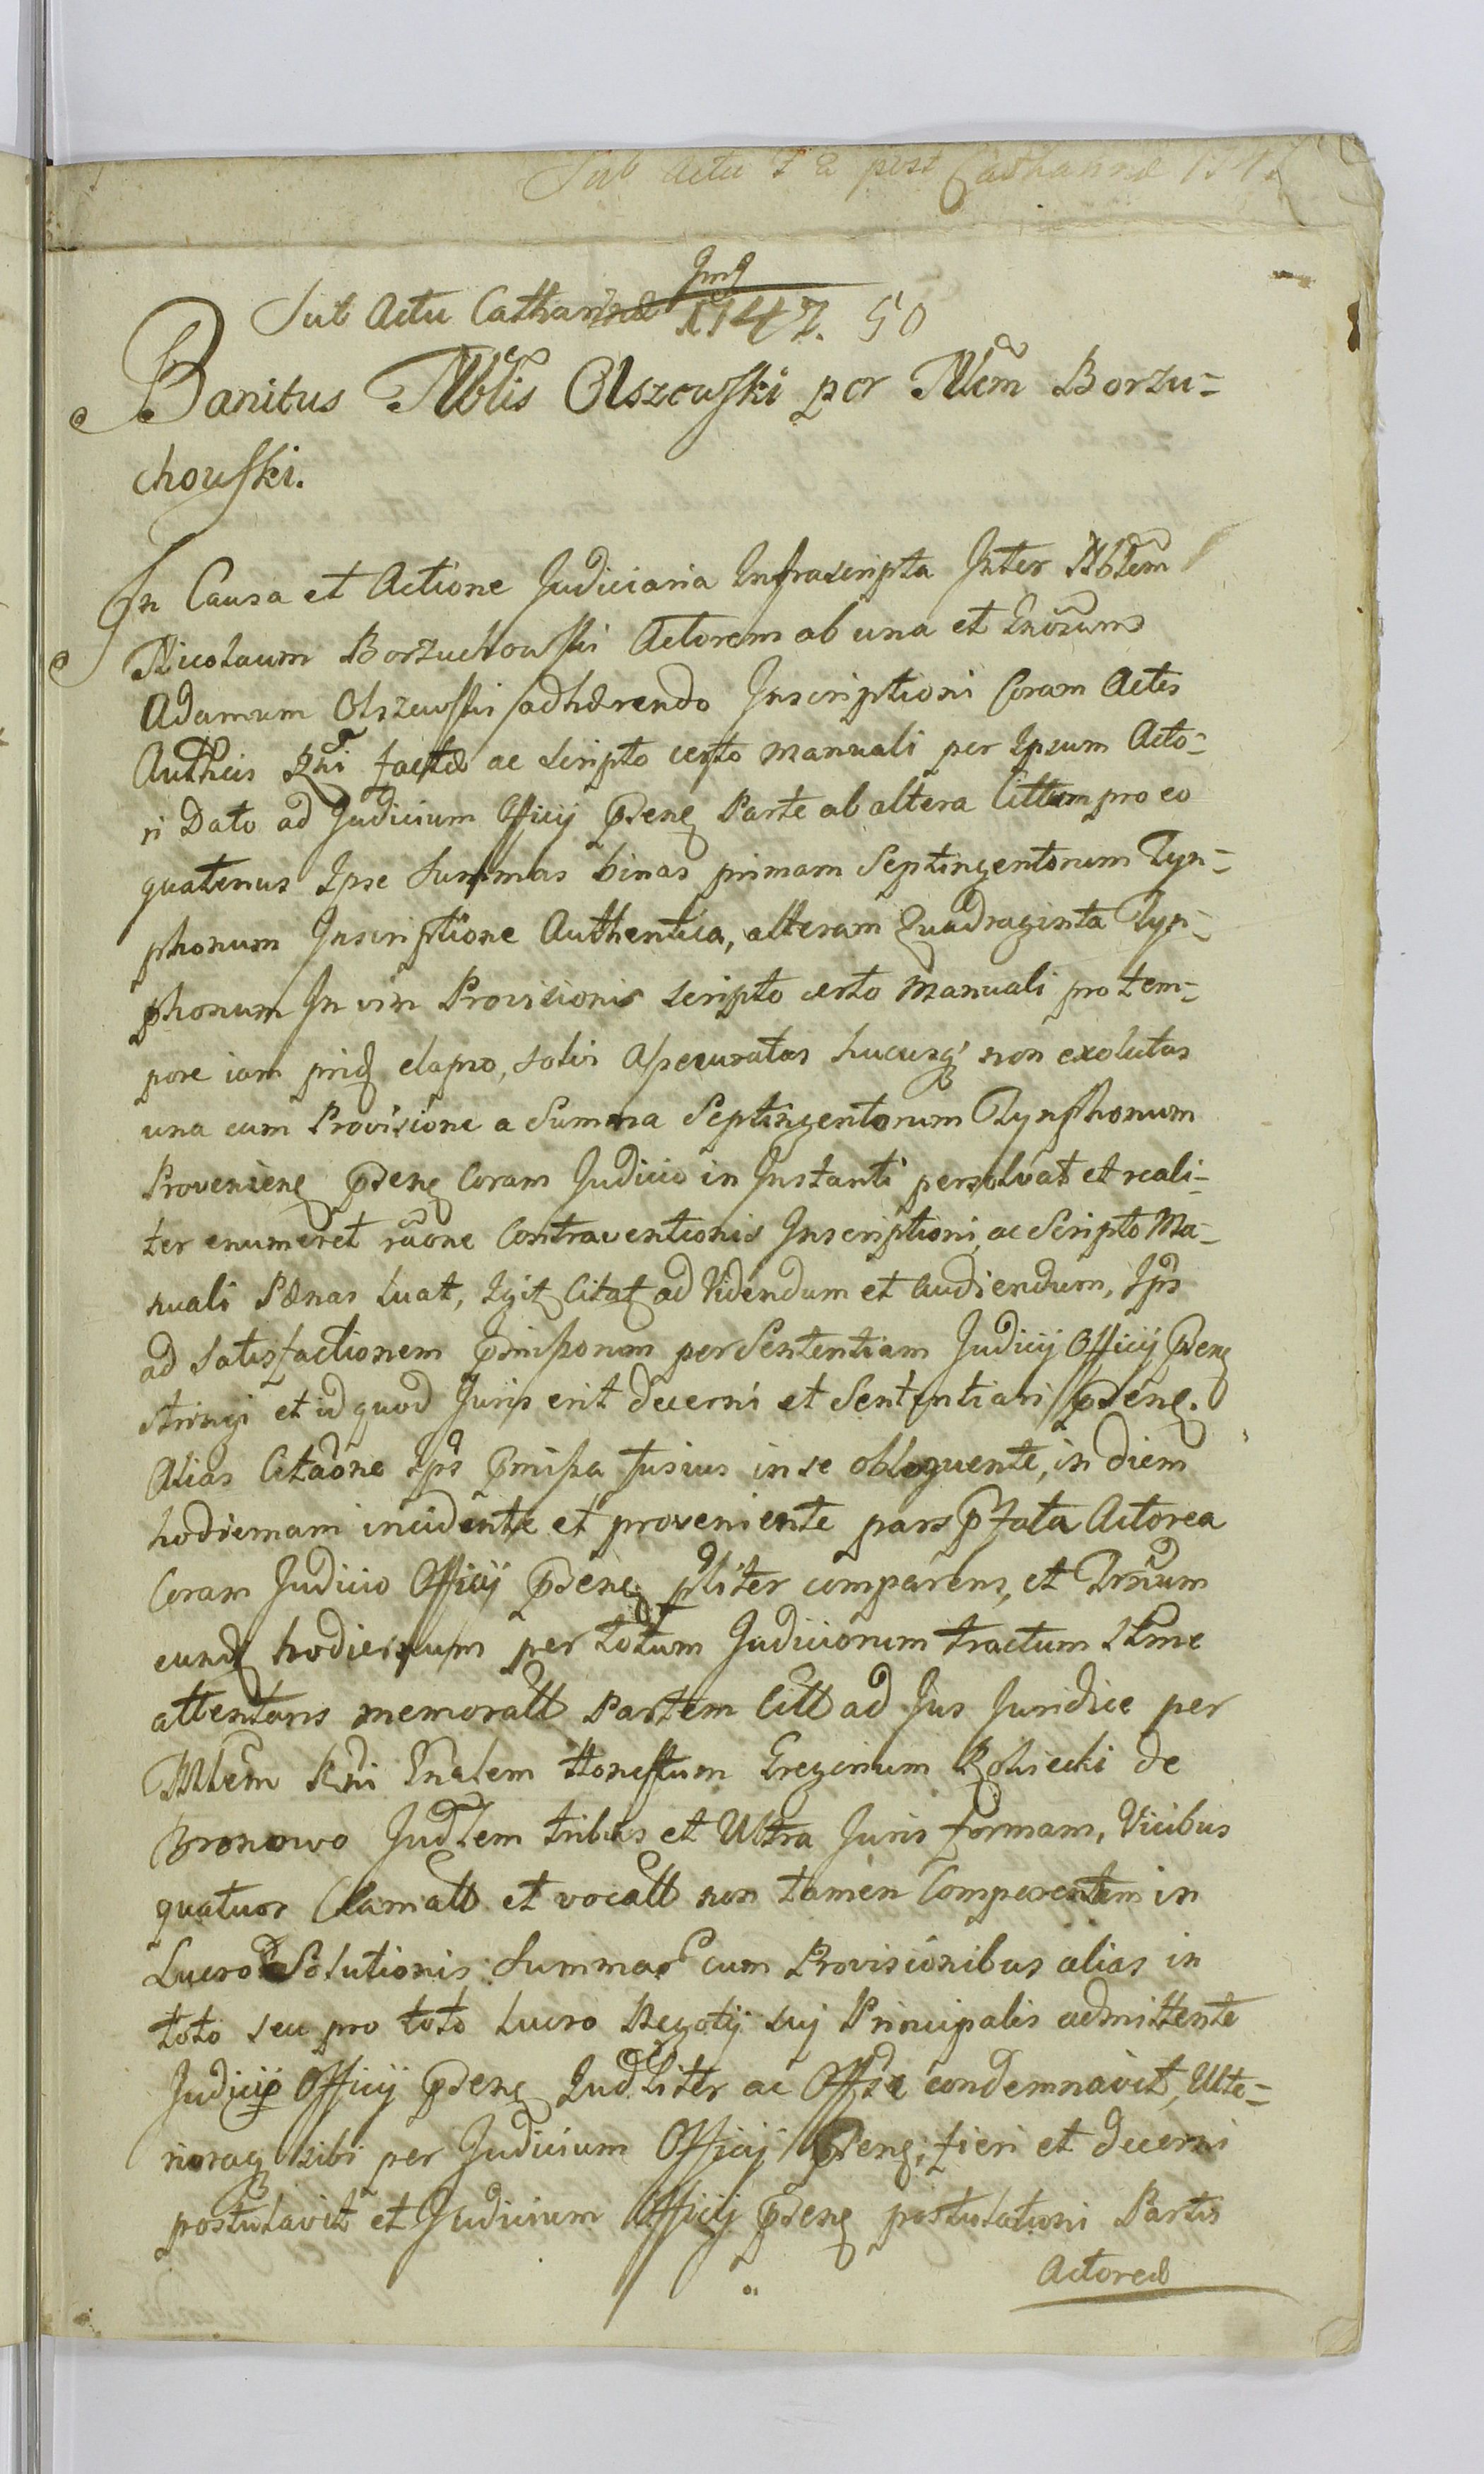 Sub Actu post Catharinæ
Sub Actu Catharinæ 1747. 50
Banitus Nblis Olszewski per Nlem Borzu=
chowski.
In Causa et Actione Judiciaria Infrascripta Inter Nblem
Nicolaum Borzuchowski Actorem ab una et Gnosum
Adamum Olszewski adhærendo Inscriptioni Coram Actis
Authcis factæ ac scripto certo manuali per Ipsum Acto=
ri Dato ad Judicium Officij Parte ab altera Cittum pro eo
quatenus Ipse Summas binas primam Septingentorum Tyn=
phonum Inscriptione Authentica, alteram Quadraginta Tyn=
phonum In vim Provisionis scripto certo Manuali pro tem=
pore iam elapso, solvi Assecuratas hucusq non exolutas
una cum Provisione a Summa Septingentorum Tynphonum
Coram Judicio in Instanti persolvat et reali=
ter enumeret raone Contraventionis Inscriptioni, ac Scripto Ma=
nuali Pænas Luat, ad Videndum et audiendum, Ips
ad Satisfactionem per Sententiam Judicij Officij
stringi et id quod Juris erit decerni et Sententiari
Alias Citaone fusius in se obloquente, in diem
hodiernam incidente et proveniente pars Actorea
Coram Judicio Officij pliter comparens, et Trnum
eund hodiernum per totum Judiciorum tractum
attentans memoratt Partem Citt ad Jus Juridice per
Honestum de
Bronowo Judlem tribus et Ultra Juris formam, Vicibus
quatuor Clamatt et vocatt non tamen Comparentem in
Lucro Solutionis Summar cum Provisionibus alias in
toto seu pro toto Lucro Negotij sui Principalis admittente
Judicio Officij Judliter ac condemnavit, Ulte=
rioraq sibi per Judicium Officij fieri et decerni
postulavit et Judicium Officij postulationi Partis
Actoreæ